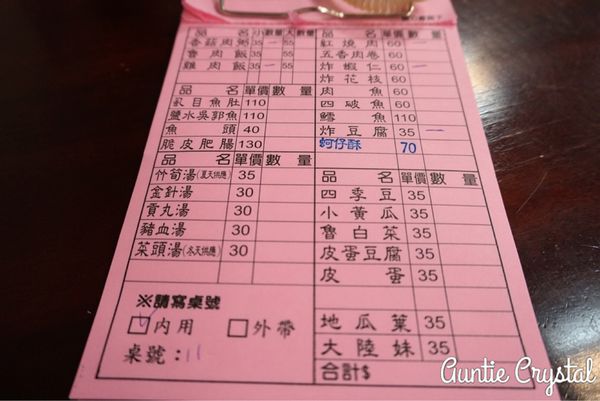 品 名 小 數量 大 數量
香菇肉粥 35 一 55
魯肉飯 35 55
雞肉飯 35 一 55
品 名 單價 數 量
虱目魚肚 110
鹽水吳郭魚 110
魚 頭 40
脆皮肥腸 130
品 名 單價 數 量
竹筍湯(夏天供應) 35
金針湯 30
貢丸湯 30
豬血湯 30
菜頭湯(冬天供應) 30
※請寫桌號
內用 外帶
桌號：11
品 名 單價 數 量
紅燒肉 60 一
五香肉卷 60
炸蝦仁 60 一
炸花枝 60
肉 魚 60
四破魚 60
鱈 魚 110
炸豆腐 35 一
蚵仔酥 70
品 名 單價 數 量
四季豆 35
小黃瓜 35
魯白菜 35
皮蛋豆腐 35
皮 蛋 35
地瓜葉 35
大陸妹 35
合計$
Auntie Crystal